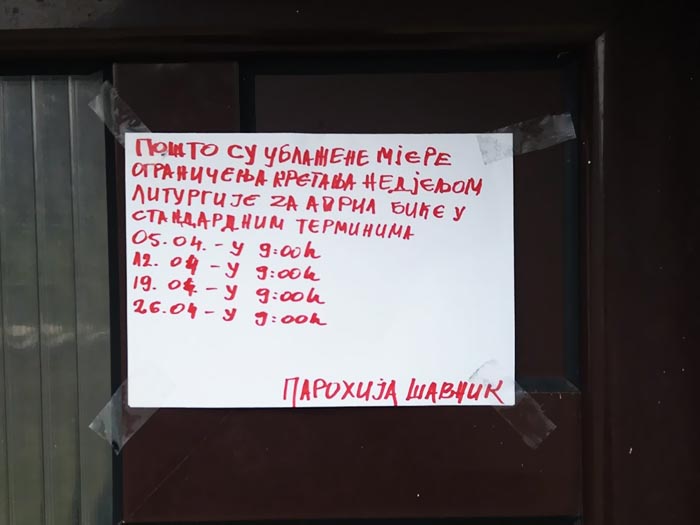 ПОШТО СУ УБЛАЖЕНЕ МЈЕРЕ
ОГРАНИЧЕЊА КРЕТАЊА НЕДЈЕЉОМ
ЛИТУРГИЈЕ ЗА АПРИЛ БИЋЕ У
СТАНДАРДНИМ ТЕРМИНИМА
05.04. - У 9:00h
12.04 - У 9:00h
19.04. - У 9:00h
26.04 - У 9:00h
ПАРОХИЈА ШАВНИК